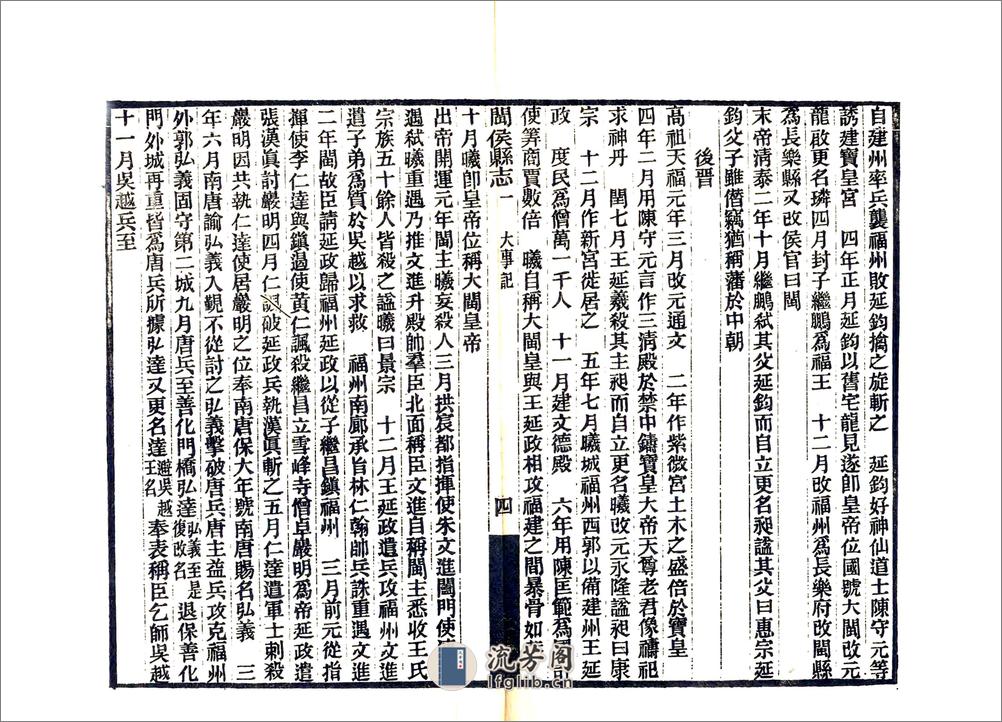 自建州率兵襲福州敗延鈞擒之旋斬之　延鈞好神仙道士陳守元等
誘建寶皇宮　四年正月延鈞以舊宅龍見遂卽皇帝位國號大閩改元
龍啟更名璘四月封子繼鵬爲福王　十二月改福州爲長樂府改閩縣
爲長樂縣又改侯官曰閩
末帝清泰二年十月繼鵬弒其父延鈞而自立更名昶諡其父曰惠宗延
鈞父子雖僭竊猶稱藩於中朝
後晉
高祖天福元年三月改元通文　二年作紫微宮土木之盛倍於寶皇
四年二月用陳守元言作三清殿於禁中鑄寶皇大帝天尊老君像禱祀
求神丹　閏七月王延羲殺其主昶而自立更名曦改元永隆諡昶曰康
宗　十二月作新宮徙居之　五年七月曦城福州西郭以備建州王延
政　度民爲僧萬一千人　十一月建文德殿　六年用陳匡範爲
使筭商賈數倍　曦自稱大閩皇與王延政相攻福建之間暴骨如
閩侯縣志　大事記　四
十月曦卽皇帝位稱大閩皇帝
出帝開運元年閩主曦妄殺人三月拱宸都指揮使朱文進閤門使
遇弒曦重遇乃推文進升殿帥羣臣北面稱臣文進自稱閩主悉收王氏
宗族五十餘人皆殺之諡曦曰景宗　十二月王延政遣兵攻福州文進
遣子弟爲質於吳越以求救　福州南廊承旨林仁翰帥兵誅重遇文進
二年閩故臣請延政歸福州延政以從子繼昌鎮福州　三月前元從指
揮使李仁達與鎮遏使黃仁諷殺繼昌立雪峰寺僧卓嚴明爲帝延政遣
張漢眞討嚴明四月仁諷破延政兵執漢眞斬之五月仁達遣軍士刺殺
嚴明因共執仁達使居嚴明之位奉南唐保大年號南唐賜名弘義　三
年六月南唐諭弘義入覲不從討之弘義擊破唐兵唐主益兵攻克福州
外郭弘義固守第二城九月唐兵至善化門橋弘達弘義至是復改名退保善化
門外城再重皆爲唐兵所據弘達又更名達避吳越王名奉表稱臣乞師吳越
十一月吳越兵至
流芳閣
lfglib.cn